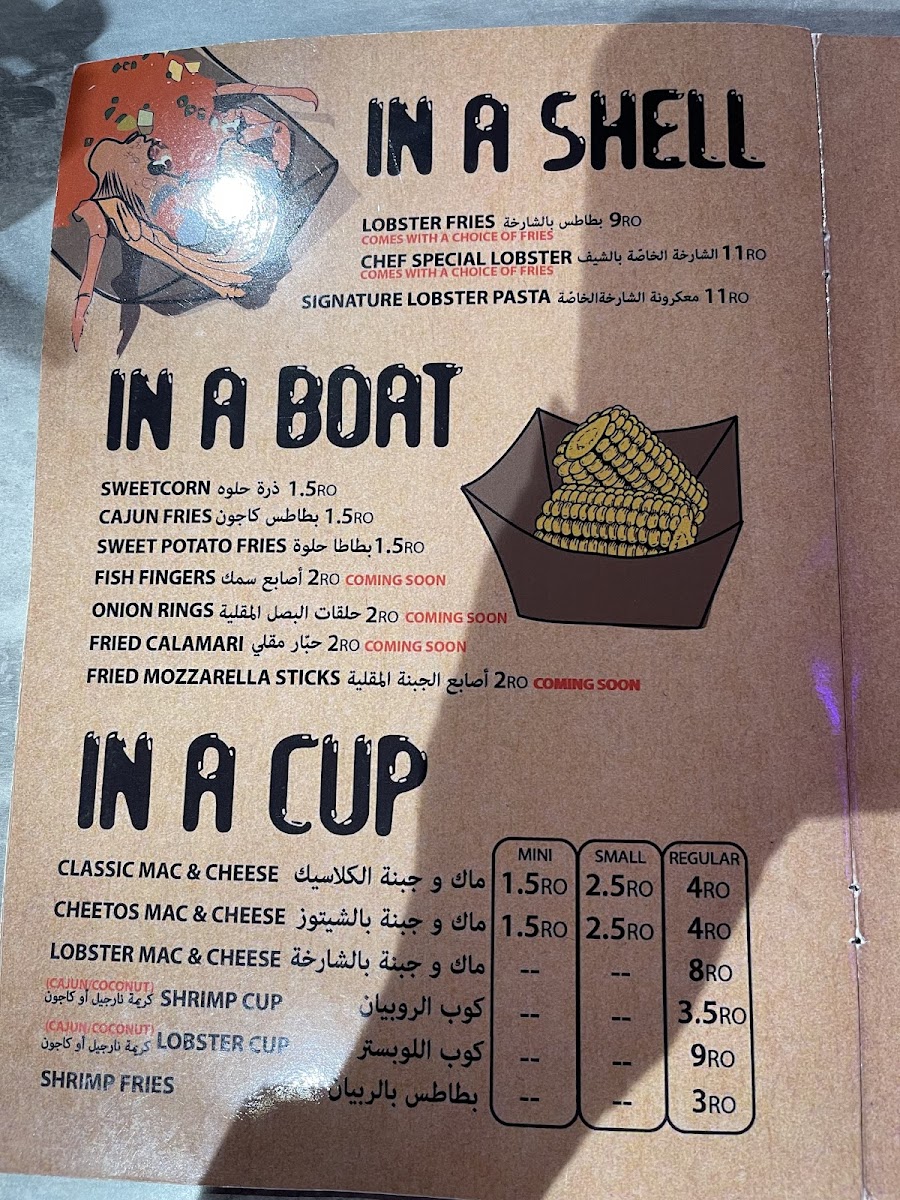 IN A SHELL
LOBSTER FRIES بطاطس بالشارخة 9RO
COMES WITH A CHOICE OF FRIES
CHEF SPECIAL LOBSTER الشارخة الخاصّة بالشيف 11RO
COMES WITH A CHOICE OF FRIES
SIGNATURE LOBSTER PASTA معكرونة الشارخةالخاصّة 11RO
IN A BOAT
SWEETCORN ذرة حلوه 1.5RO
CAJUN FRIES بطاطس كاجون 1.5RO
SWEET POTATO FRIES بطاطا حلوة 1.5RO
FISH FINGERS أصابع سمك 2RO COMING SOON
ONION RINGS حلقات البصل المقلية 2RO COMING SOON
FRIED CALAMARI حبّار مقلي 2RO COMING SOON
FRIED MOZZARELLA STICKS أصابع الجبنة المقلية 2RO COMING SOON
IN A CUP
MINI SMALL REGULAR
CLASSIC MAC & CHEESE ماك و جبنة الكلاسيك 1.5RO 2.5RO 4RO
CHEETOS MAC & CHEESE ماك و جبنة بالشيتوز 1.5RO 2.5RO 4RO
LOBSTER MAC & CHEESE ماك و جبنة بالشارخة -- -- 8RO
(CAJUN/COCONUT)
كريمة نارجيل أو كاجون SHRIMP CUP كوب الروبيان -- -- 3.5RO
(CAJUN/COCONUT)
كريمة نارجيل أو كاجون LOBSTER CUP كوب اللوبستر -- -- 9RO
SHRIMP FRIES بطاطس بالربيان -- -- 3RO